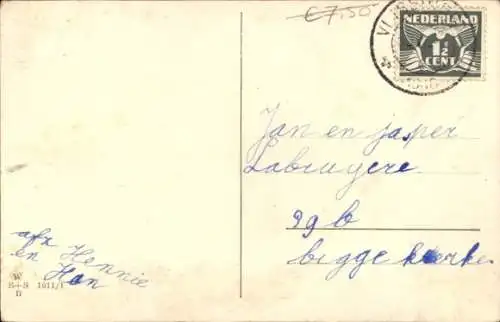 € 7,50
NEDERLAND
1½
CENT
Jan en jasper
Labruyere.
99 b
biggekerke
afz Hennie
en Han
W
B+S 1611/1
D